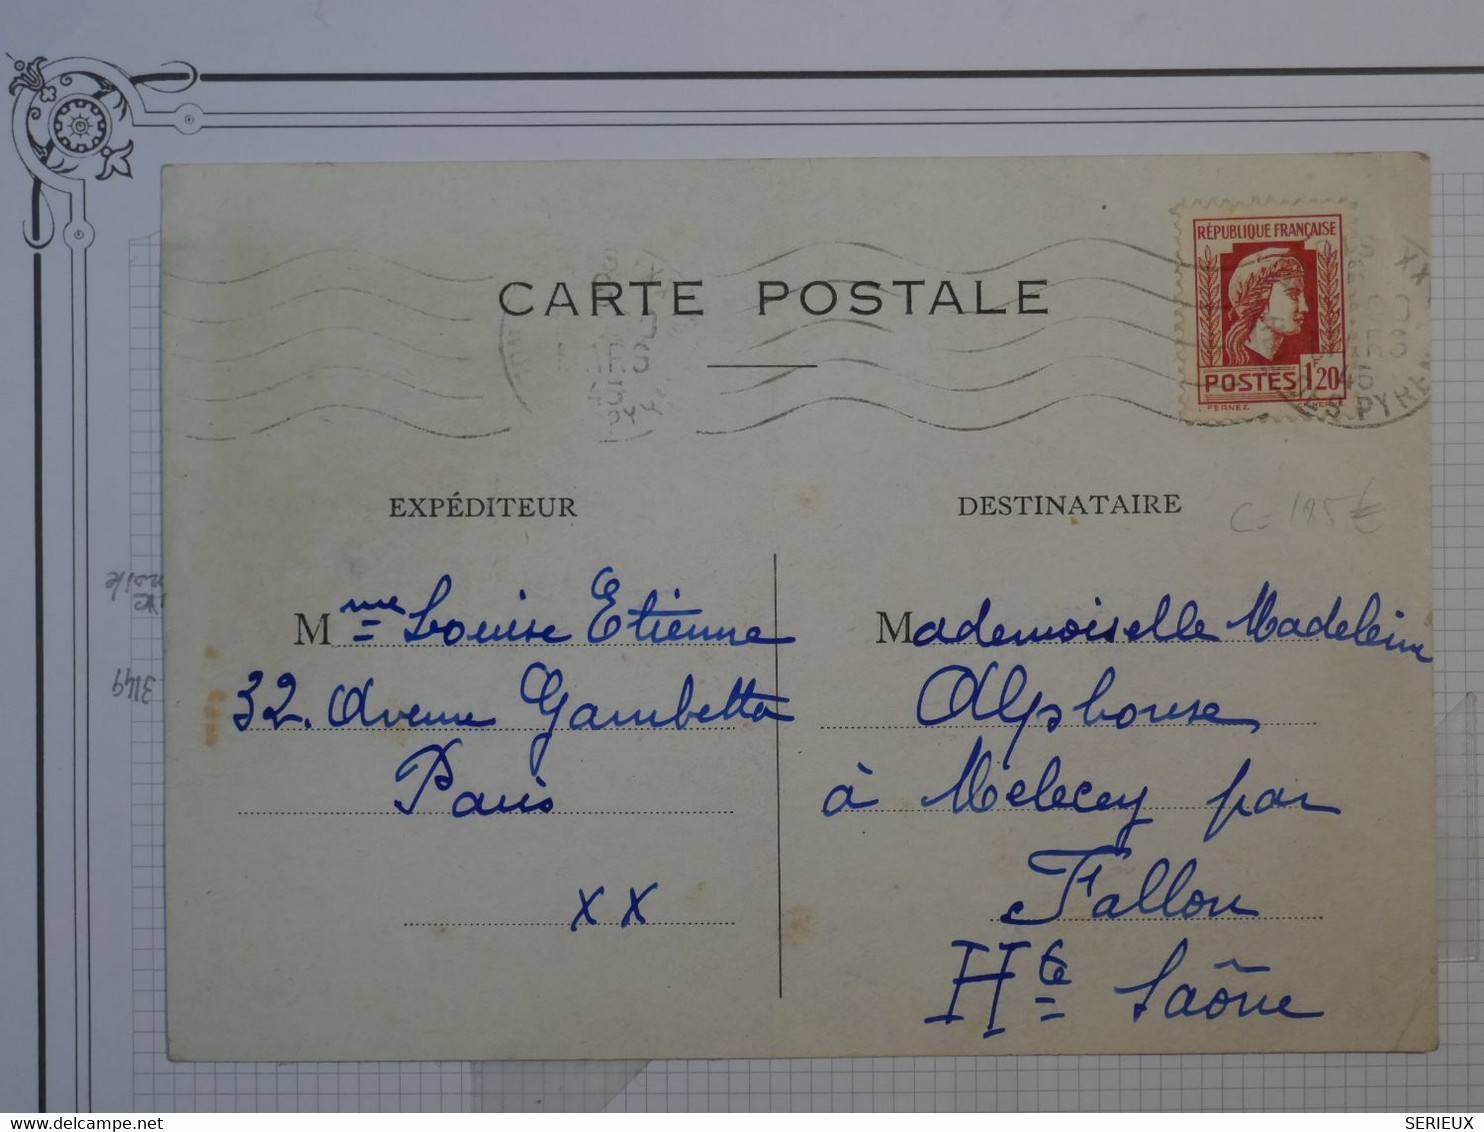 CARTE POSTALE
RÉPUBLIQUE FRANÇAISE
POSTES 1F20
FERNEZ
MARS
45
XX
MARS
45
PYREN
EXPÉDITEUR
DESTINATAIRE
Mme Louise Etienne
32. Avenue Gambetta
Paris
XX
Mademoiselle Madeleine
Alphonse
à Melecey par
Fallon
Hte Saône
3149
delcampe.net
SERIEUX